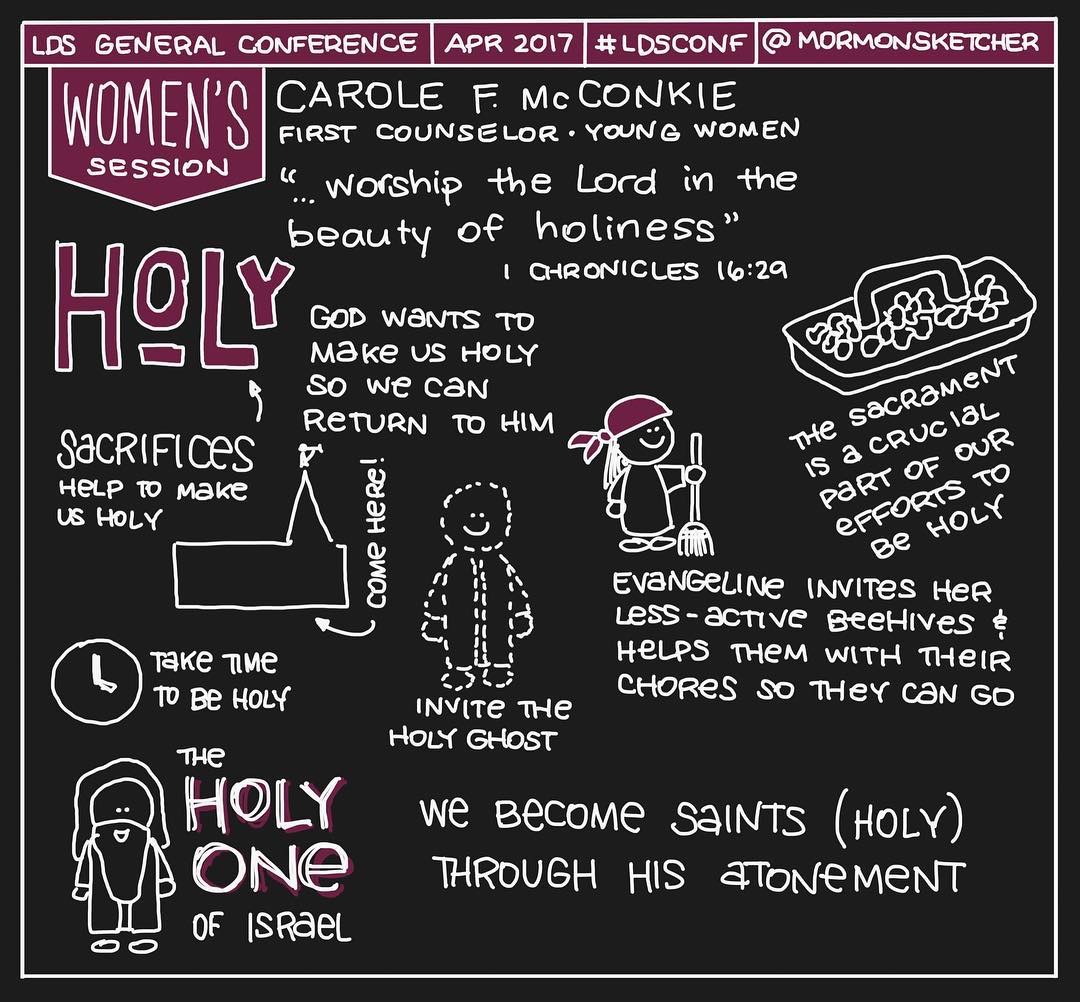 LDS GENERAL CONFERENCE APR 2017 #LDSCONF @MORMONSKETCHER
WOMEN'S
SESSION
CAROLE F. McCONKIE
FIRST COUNSELOR · YOUNG WOMEN
"... worship the Lord in the
beauty of holiness"
1 CHRONICLES 16:29
HOLY
GOD WANTS TO
MAKE US HOLY
SO WE CAN
RETURN TO HIM
SACRIFICES
HELP TO MAKE
US HOLY
COME HERE!
THE SACRAMENT
IS A CRUCIAL
PART OF OUR
EFFORTS TO
BE HOLY
EVANGELINE INVITES HER
LESS-ACTIVE BEEHIVES &
HELPS THEM WITH THEIR
CHORES SO THEY CAN GO
TAKE TIME
TO BE HOLY
INVITE THE
HOLY GHOST
THE
HOLY
ONE
OF ISRAEL
WE BECOME SAINTS (HOLY)
THROUGH HIS ATONEMENT